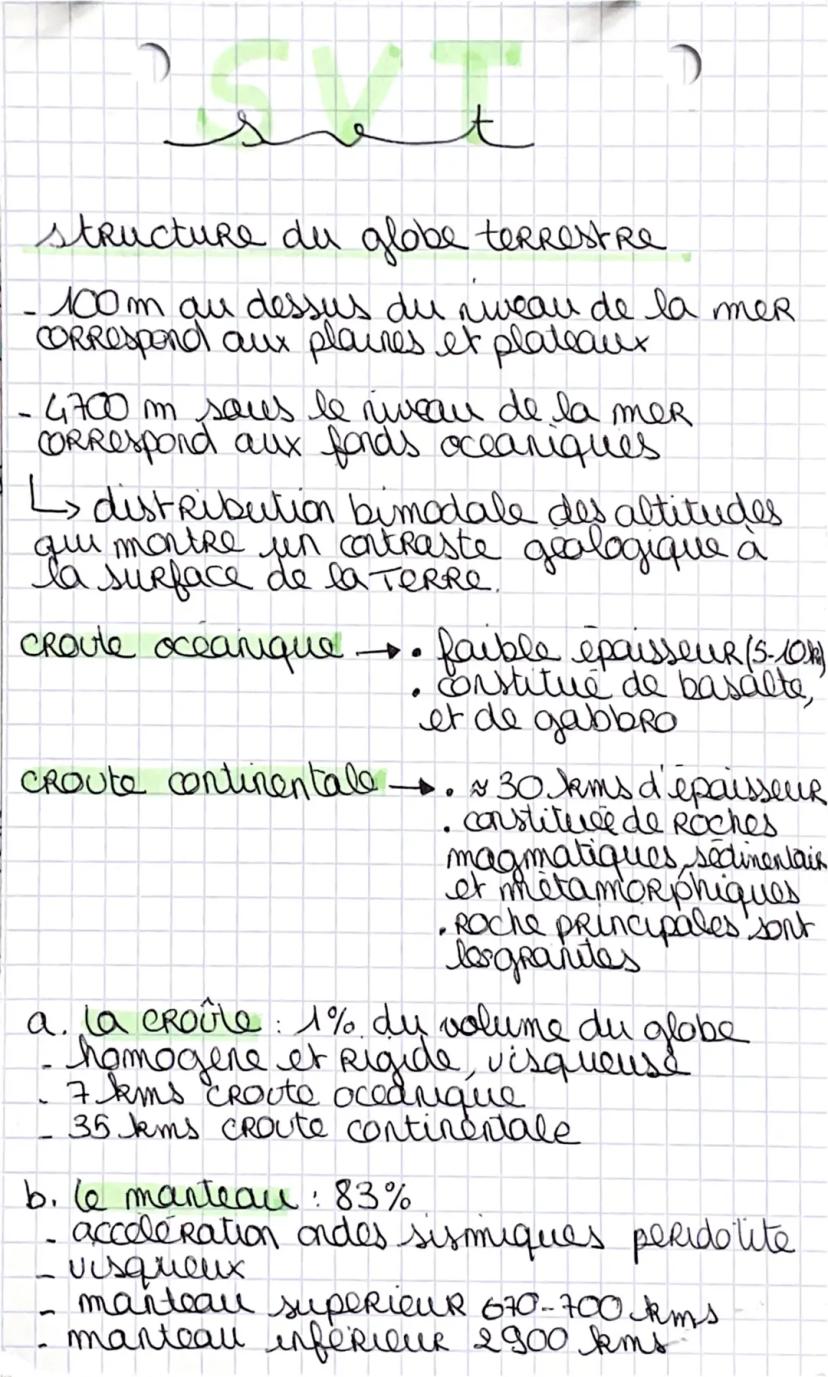 SVT
svt
structure du globe terrestre
- 100m au dessus du niveau de la mer
correspond aux plaines et plateaux
- 4700 m sous le niveau de la mer
correspond aux fonds oceaniques
↳ distribution bimodale des altitudes
qui montre un contraste géologique à
la surface de la Terre.
croute océanique → • faible épaisseur (5-10k)
• constitué de basalte,
et de gabbro
croute continentale → • ≈ 30 kms d'épaisseur
• constituée de roches
magmatiques, sédimentair
et métamorphiques
• Roche principales sont
les granites
a. la croûte : 1% du volume du globe
- homogene et rigide, visqueuse
- 7 kms croute oceanique
- 35 kms croute continentale
b. le manteau : 83%
- accélération ondes sismiques peridotite
- visqueux
- manteau superieur 670-700 kms
- manteau inférieur 2900 kms